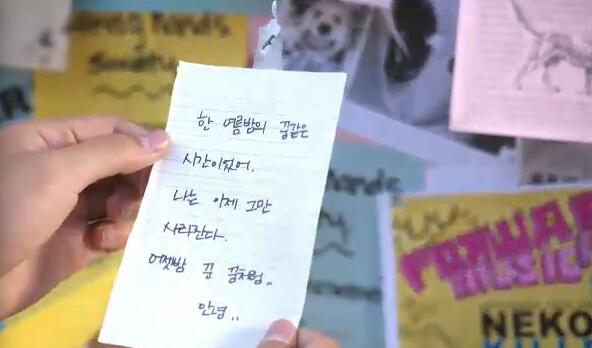 한 여름밤의 꿈같은
시간이었어.
나는 이제 그만
사라진다.
어젯밤 꾼 꿈처럼..
안녕..
NEKO